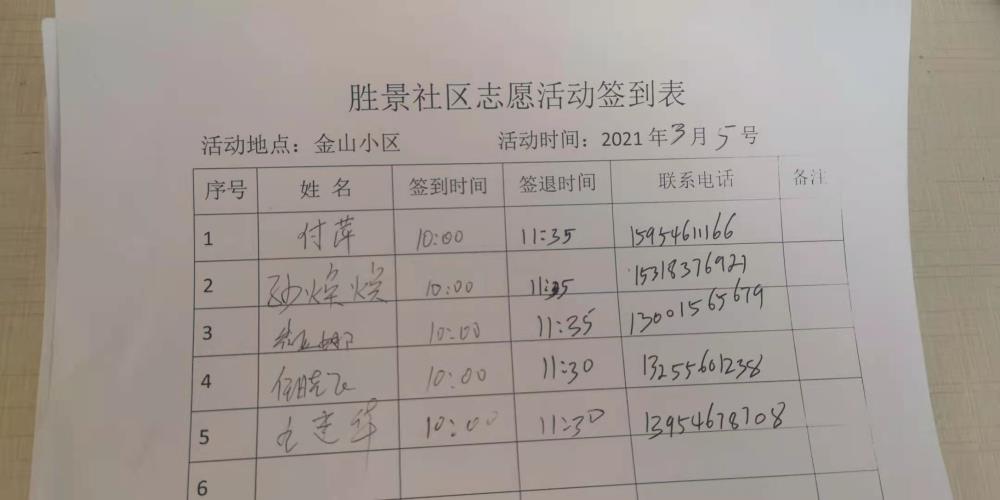 胜景社区志愿活动签到表
活动地点：金山小区 活动时间：2021 年 3 月 5 号
序号 姓 名 签到时间 签退时间 联系电话 备注
1 付萍 10:00 11:35 15954611166
2 焕焕 10:00 11:35 15318376921
3 10:00 11:35 13001565679
4 任晓飞 10:00 11:30 13255601238
5 王建华 10:00 11:30 13954678708
6